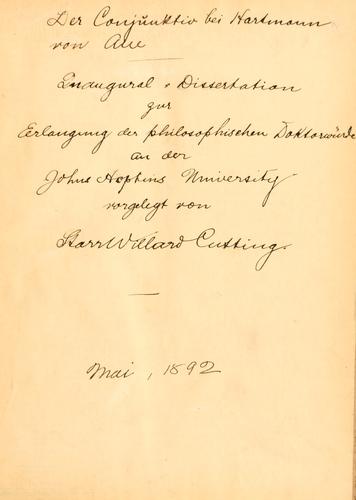 Der Conjunktiv bei Hartmann
von Aue
Inaugural-Dissertation
zur
Erlangung der philosophischen Doktorwürde
an der
Johns Hopkins University
vorgelegt von
Starr Willard Cutting.
Mai, 1892